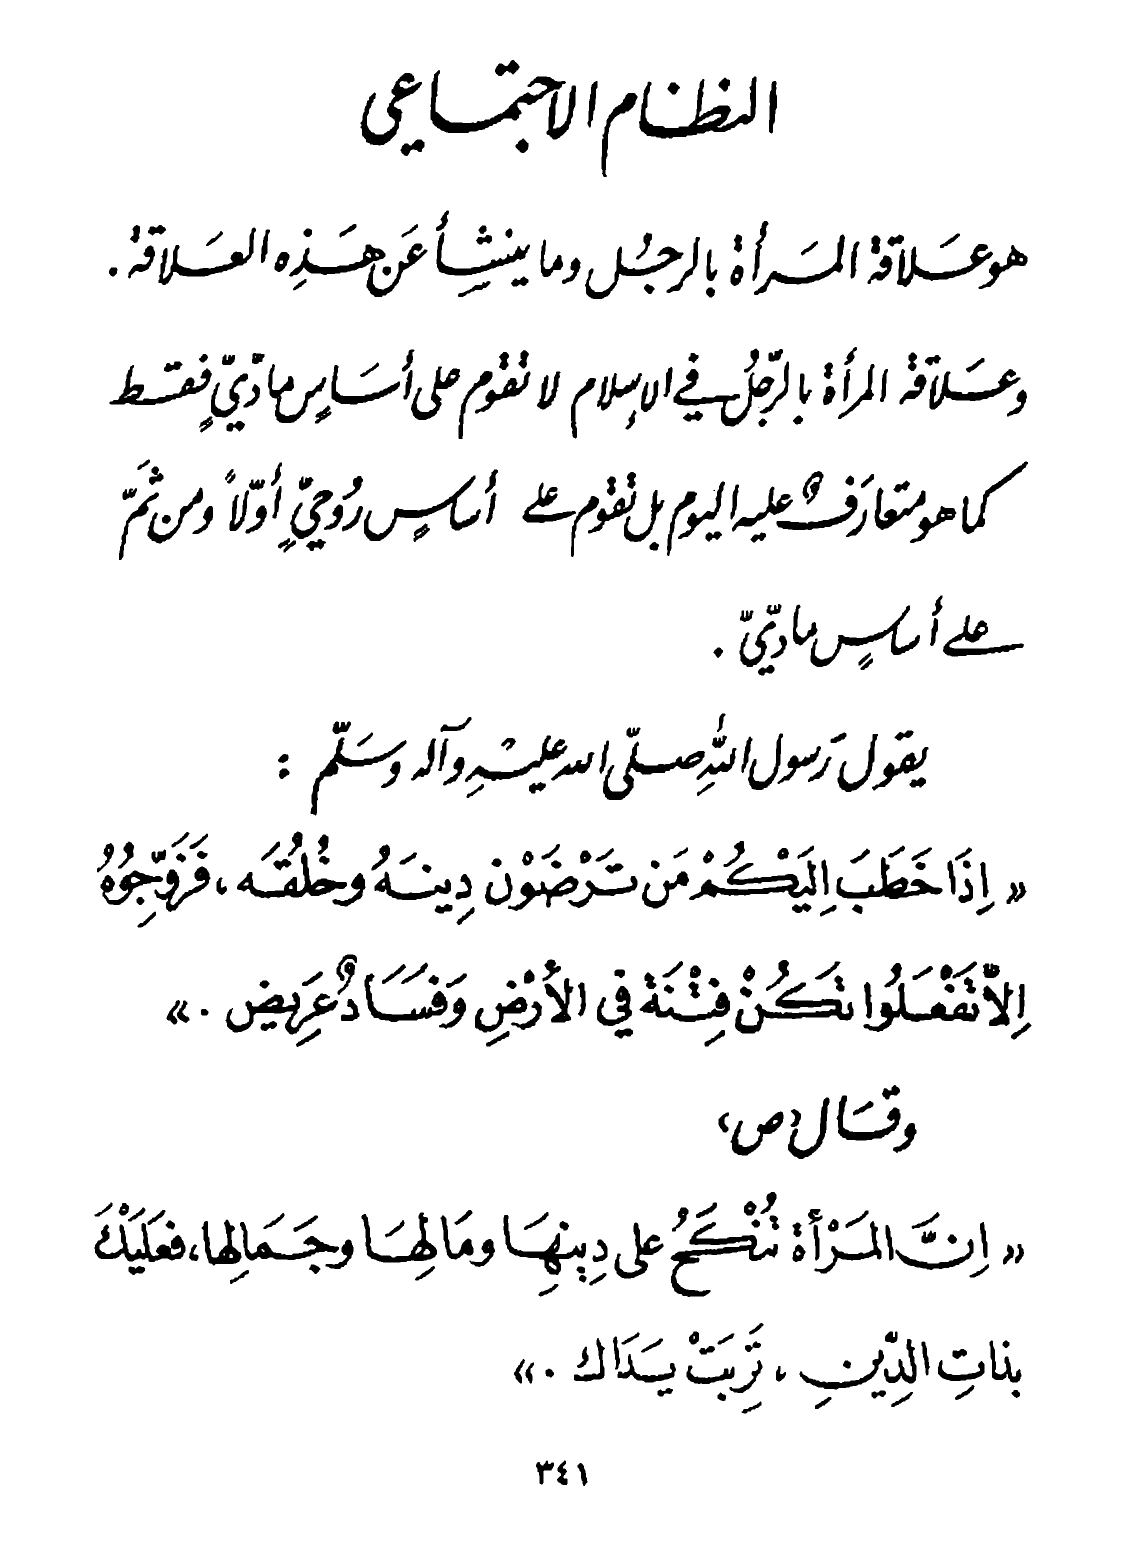 النظام الاجتماعي
هو عَلاقة المَرأة بالرجُل وما ينشأ عَن هَذِه العَلاقة .
وعَلاقة المرأة بالرّجُل في الإسلام لا تقوم على أسَاسٍ مادّيّ فقط
كما هو متعارَفٌ عليه اليوم بل تقوم على أساسٍ رُوحيٍّ أوّلاً ومن ثَمّ
على أساسٍ مادّيّ .
يقول رَسول اللهِ صلّى الله عليهِ وآله وسَلّم :
« اِذَا خَطَبَ اِلَيْكُمْ مَن تَرْضَوْن دِينَهُ وخُلُقَه ، فَزَوِّجُوهُ
اِلاّ تَفْعَلُوا تَكُنْ فِتْنَة في الأرْضِ وَفَسَادٌ عَرِيض . »
وقَال (ص)
« اِنَّ المَرْأة تُنْكَحُ على دِينِهَا ومَالِهَا وجَمالِها، فعَلَيْكَ
بذاتِ الدِّينِ ، تَرِبَتْ يَدَاك . »
٣٤١